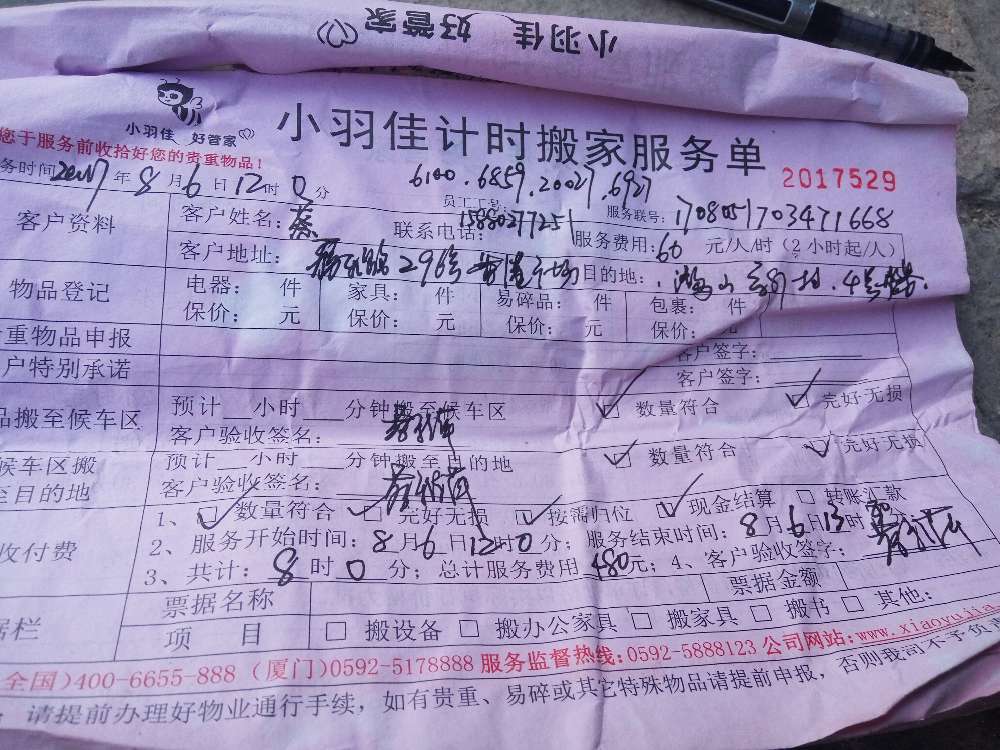 小羽佳 好管家
小羽佳 好管家
小羽佳计时搬家服务单
您于服务前收拾好您的贵重物品！
2017529
务时间2017年8月6日12时0分
员工工号：6100.6859.20027.6927
服务联号：170805170347 1668
客户资料
客户姓名：蔡 联系电话：15880277251 服务费用：60 元/人/时（2小时起/人）
客户地址： 296号 目的地： 4号楼
物品登记
电器： 件 家具： 件 易碎品： 件 包裹： 件
保价： 元 保价： 元 保价： 元 保价： 元
重物品申报 客户签字：
户特别承诺 客户签字：
品搬至候车区
预计__小时__分钟搬至候车区 数量符合 完好无损
客户验收签名：
候车区搬至目的地
预计__小时__分钟搬至目的地 数量符合 完好无损
客户验收签名：
收付费
1、 数量符合 完好无损 按需归位 现金结算 转账汇款
2、服务开始时间：8月6日12时0分；服务结束时间：8月6日13时 分；
3、共计：8时0分；总计服务费用480元；4、客户验收签字：
据栏
票据名称 票据金额
项 目 搬设备 搬办公家具 搬家具 搬书 其他：
全国）400-6655-888（厦门）0592-5178888 服务监督热线：0592-5888123 公司网站：www.xiaoyujia
：请提前办理好物业通行手续，如有贵重、易碎或其它特殊物品请提前申报，否则我司不予负责